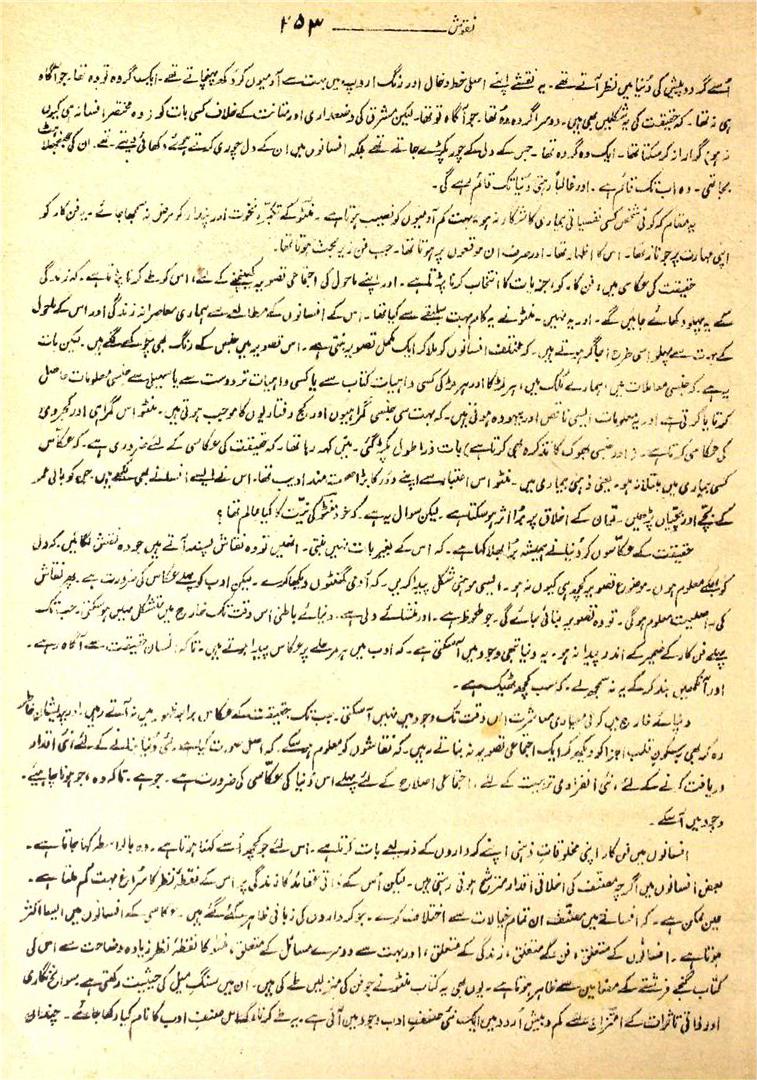 نقوش ــــــــــ ۲۵۳
اُسے گرد و پیش کی دُنیا میں نظر آتے تھے۔ یہ نقشے اپنے اصلی خط و خال اور رنگ اور روپ میں بہت سے آدمیوں کو دُکھ پہنچاتے تھے۔ ایک گروہ تو وہ تھا۔ جو آگاہ
ہی نہ تھا۔ کہ حقیقت کی یہ شکلیں بھی ہیں۔ دوسرا گروہ وہ تھا۔ جو آگاہ تو تھا۔ لیکن مشرق کی وضعداری اور متانت کے خلاف کسی بات کو وہ مختصر افسانہ ہی کیوں
نہ ہو، گوارا نہ کر سکتا تھا۔ ایک وہ گروہ تھا۔ جس کے دل کے چور پکڑے جاتے تھے بلکہ افسانوں میں ان کے دل چوری کرتے ہوئے دکھائی دیتے تھے۔ ان کی جھنجھلاہٹ
بجا تھی۔ وہ اب تک قائم ہے۔ اور غالباً رہتی دُنیا تک قائم رہے گی۔
یہ مقام کہ کوئی شخص کسی نفسیاتی بیماری کا شکار نہ ہو۔ بہت کم آدمیوں کو نصیب ہوتا ہے۔ منٹو کے تکبر، نخوت اور پندار کو مرض نہ سمجھا جائے۔ یہ فن کار کو
اپنی مہارت پر جو ناز تھا۔ اس کا اظہار تھا۔ اور صرف ان موقعوں پر ہوتا تھا۔ جب فن زیرِ بحث ہوتا تھا۔
حقیقت کی عکاسی میں، فن کار کو، جزئیات کا انتخاب کرنا پڑتا ہے۔ اور اپنے ماحول کی اجتماعی تصویر کھینچنے کے لئے، اس کو طے کرنا پڑتا ہے۔ کہ زندگی
کے یہ پہلو دکھائے جائیں گے۔ اور یہ نہیں۔ منٹو نے یہ کام بہت سلیقے سے کیا تھا۔ اس کے افسانوں کے مطالعے سے ہماری معاصرانہ زندگی اور اس کے ماحول
کے بہت سے پہلو اسی طرح اجاگر ہوتے ہیں۔ کہ مختلف افسانوں کو ملا کر ایک مکمل تصویر بنتی ہے۔ اس تصویر میں جنس کے رنگ بھی سجو کے گئے ہیں۔ لیکن بات
یہ ہے کہ جنسی معاملات میں، ہمارے ملک میں، ہر لڑکا اور ہر لڑکی کسی واہیات کتاب سے یا کسی واہیات تر دوست سے یا سہیلی سے جنسی معلومات حاصل
کرتا یا کرتی ہے اور یہ معلومات ایسی ناقص اور بیہودہ ہوتی ہیں۔ کہ بہت سی جنسی گمراہیوں اور کج رفتاریوں کا موجب ہوتی ہیں۔ منٹو اس گمراہی اور کجروی
کی عکاسی کرتا ہے۔ (اور جنسی بھوک کا تذکرہ بھی کرتا ہے) بات ذرا طول پکڑ گئی۔ میں کہہ رہا تھا، کہ حقیقت کی عکاسی کے لئے ضروری ہے۔ کہ عکاس
کسی بیماری میں مبتلا نہ ہو۔ یعنی ذہنی بیماری میں۔ منٹو اس اعتبار سے اپنے دور کا بڑا صحت مند ادیب تھا۔ اس نے ایسے افسانے بھی لکھے ہیں۔ جن کو بالی عمر
کے بچے اور بچیاں پڑھیں۔ تو ان کے اخلاق پر بُرا اثر ہو سکتا ہے۔ لیکن سوال یہ ہے۔ کہ خود منٹو کی نیت کا کیا عالم تھا؟
حقیقت کے عکاسوں کو دُنیا نے ہمیشہ بُرا بھلا کہا ہے۔ کہ اس کے بغیر بات نہیں بنتی۔ انہیں تو وہ نقاش پسند آتے ہیں جو وہ نقش بنائیں۔ کہ دل
کو بھلے معلوم ہوں۔ موضوع تصویر کچھ ہی کیوں نہ ہو۔ ایسی موہنی شکل پیدا کریں۔ کہ آدمی گھنٹوں دیکھا کرے۔ لیکن ادب کو پہلے عکاس کی ضرورت ہے پھر نقاش
کی۔ اصلیت معلوم ہو گی۔ تو وہ تصویر بنائی جائے گی۔ جو ملحوظ ہے۔ اور منشائے دلی ہے۔ دنیائے باطنی اس وقت تک خارج میں متشکل نہیں ہو سکتی۔ جب تک
پہلے فن کار کے ضمیر کے اندر پیدا نہ ہو۔ یہ دنیا تبھی وجود میں آ سکتی ہے۔ کہ ادب میں ہر مرحلے پر عکاس پیدا ہوتے ہیں۔ تاکہ انسان حقیقت سے آگاہ رہے۔
اور آنکھیں بند کر کے یہ نہ سمجھ لے۔ کہ سب کچھ ٹھیک ہے۔
دنیائے خارج میں کوئی معیاری معاشرت اس وقت تک وجود میں نہیں آ سکتی۔ جب تک حقیقت کے عکاس برابر ظہور میں نہ آتے رہیں۔ اور پریشان خاطر
رہ کر بھی پرسکون قلب اجزا کو دیکھ کر ایک اجتماعی تصویر نہ بناتے رہیں۔ کہ نقاشوں کو معلوم ہو سکے۔ کہ اصل صورت کیا ہے۔ نئی دُنیا بنانے کے لئے نئی اقدار
دریافت کرنے کے لئے، نئی انفرادی تربیت کے لئے، اجتماعی اصلاح کے لئے پہلے اس دُنیا کی عکاسی کی ضرورت ہے۔ جو ہے۔ تاکہ وہ، جو ہونا چاہیئے۔
وجود میں آ سکے۔
افسانوں میں فن کار اپنی مخلوقاتِ ذہنی اپنے کرداروں کے ذریعے بات کرتا ہے۔ اس لئے جو کچھ اُسے کہنا ہوتا ہے۔ وہ بالواسطہ کہا جاتا ہے۔
بعض افسانوں میں اگرچہ مصنف کی اخلاقی اقدار مترشح ہوتی رہتی ہیں۔ لیکن اُس کے ذاتی عقائد کا زندگی پر اس کے نقطۂ نظر کا سراغ بہت کم ملتا ہے۔
عین ممکن ہے۔ کہ افسانے میں مصنف ان تمام خیالات سے اختلاف کرے۔ جو کرداروں کی زبانی ظاہر کئے گئے ہیں۔ عکاسی کے افسانوں میں ایسا اکثر
ہوتا ہے۔ افسانوں کے متعلق، فن کے متعلق، زندگی کے متعلق، اور بہت سے دوسرے مسائل کے متعلق، منٹو کا نقطۂ نظر زیادہ وضاحت سے اس کی
کتاب گنجے فرشتے کے مضامین سے ظاہر ہوتا ہے۔ یوں بھی یہ کتاب منٹو نے جو فن کی منزلیں طے کی ہیں۔ ان میں سنگِ میل کی حیثیت رکھتی ہے سوانح نگاری
اور ذاتی تاثرات کے امتزاج سے کم و بیش اُردو میں ایک نئی صنفِ ادب وجود میں آئی ہے۔ یہ طے کرنا، کہ اس صنفِ ادب کا نام کیا رکھا جائے۔ چنداں